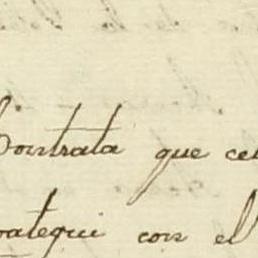 Contrata que cel
oategui con el